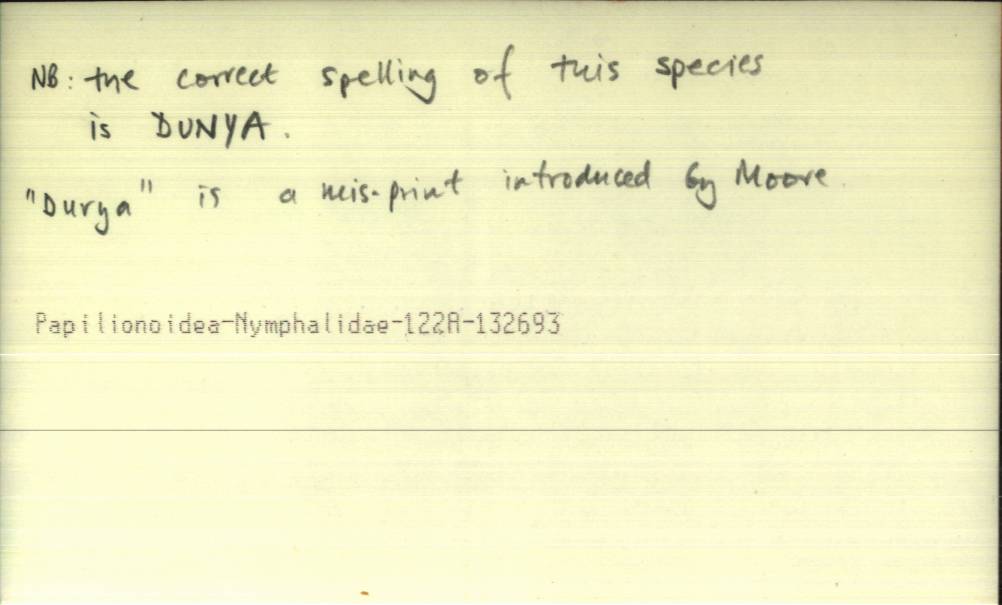 NB: the correct spelling of this species
is DUNYA.
"Durya" is a mis-print introduced by Moore.
Papilionoidea-Nymphalidae-122A-132693